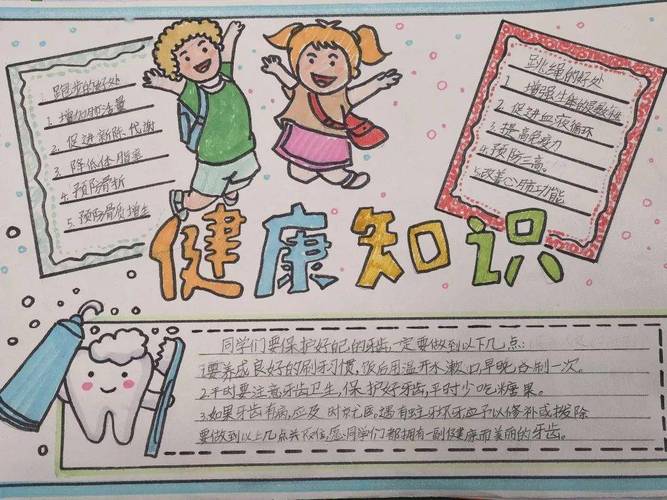 跑步的好处
1. 增加肺活量
2. 促进新陈代谢
3. 降低体脂率
4. 预防骨折
5. 预防骨质增生
跳绳的好处
1. 增强身体的灵敏性
2. 促进血液循环
3. 提高免疫力
4. 预防三高。
5. 改善心肺功能
健康知识
同学们要保护好自己的牙齿,一定要做到以下几点:
1.要养成良好的刷牙习惯,饭后用温开水漱口早晚各刷一次。
2.平时要注意牙齿卫生,保护好牙齿,平时少吃糖果。
3.如果牙齿有病,应及时就医,遇有蛀牙坏牙应予以修补或拔除
要做到以上几点并不难,愿同学们都拥有一副健康而美丽的牙齿。